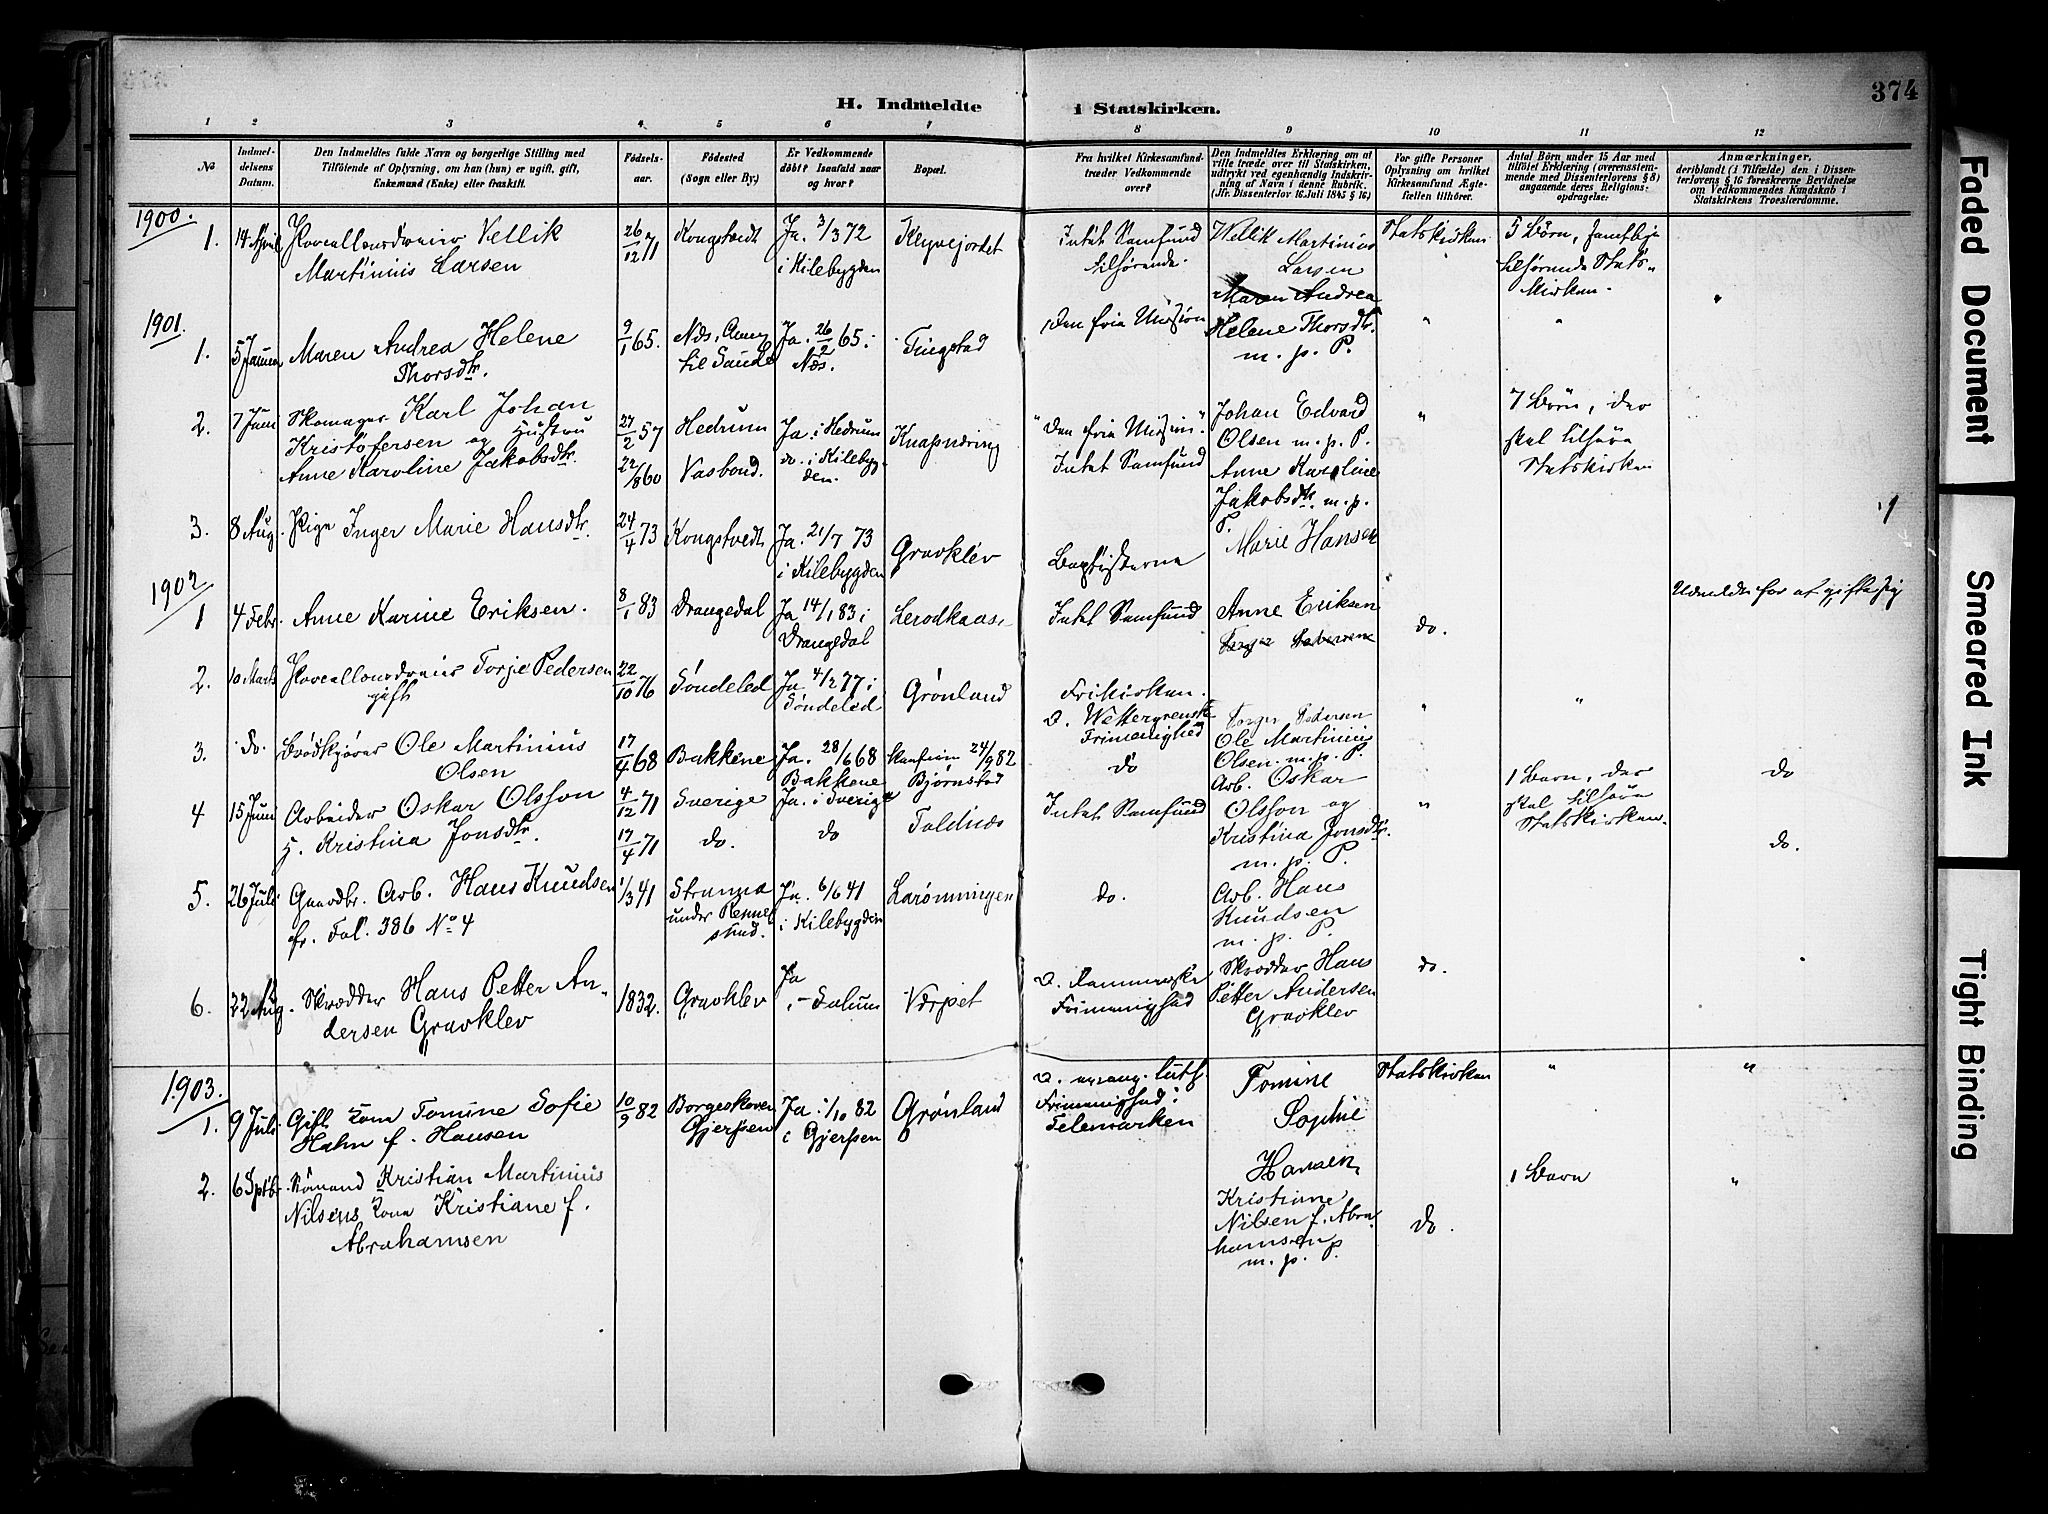 374
H. Indmeldte i Statskirken.
1 2 3 4 5 6 7 8 9 10 11 12
No
Indmel-
delsens
Datum.
Den Indmeldtes fulde Navn og borgerlige Stilling med
Tilföiende af Oplysning, om han (hun) er ugift, gift,
Enkemand (Enke) eller fraskilt.
Födsels-
aar.
Födested
(Sogn eller By.)
Er Vedkommende
döbt? Isaafald naar
og hvor?
Bopæl.
Fra hvilket Kirkesamfund-
træder Vedkommende
over?
Den Indmeldtes Erklæring om at
ville træde over til Statskirken,
udtrykt ved egenhændig Indskriv-
ning af Navn i denne Rubrik.
(Jfr. Dissenterlov 16 Juli 1845 § 16)
For gifte Personer
Oplysning om hvilket
Kirkesamfund Ægte-
fællen tilhörer.
Antal Börn under 15 Aar med
tilföiet Erklæring (overensstem-
mende med Dissenterlovens § 8)
angaaende deres Religions-
opdragelse:
Anmærkninger,
deriblandt (i Tilfælde) den i Dissen-
terlovens § 16 foreskrevne Bevidnelse
om Vedkommendes Kundskab i
Statskirkens Troeslærdomme.
1900.
1. 14 April Vellik
Martinius Larsen
26/12 71
Kongstvedt
Ja. 3/3 72
i Kilebygden
Klyvejordet
Intet Samfund
tilhørende.
Vellik Martinius
Larsen
Statskirken
5 Börn,
tilhørende Stats-
kirken.
1901.
1. 5 Januar Maren Andrea Helene
Thorsdtr.
9/1 65.
Næs,
til Saude
Ja. 26/2 65 i
Næs.
Tingstad
Den frie Mission
Maren Andrea
Helene Thorsdtr.
m. p. P.
"
"
2. 7 Juni Skomager Karl Johan
Kristofersen og Hustru
Anne Karoline Jakobsdtr.
27/2 57
22/8 60
Hedrum
Vasbond.
Ja i Hedrum
do. i Kilebyg-
den.
Knapnæring
"Den frie Mission."
Intet Samfund
Johan Edvard
Olsen m. p. P.
Anne Karoline
Jakobsdtr. m. p.
P.
"
7 Börn, der
skal tilhøre
Statskirken
3. 8 Aug. Pige Inger Marie Hansdtr.
24/4 73
Kongstvedt
Ja. 21/7 73
i Kilebygden
Gravklev
Baptisterne
Marie Hansen
1902
1 4 Febr. Anne Karine Eriksen.
8/1 83
Drangedal
Ja 14/1 83 i
Drangedal
Intet Samfund
Anne Eriksen
do.
Udmeldt for at gifte sig
2. 10 Marts Torje Pedersen
gift
22/10 76
Söndeled
Ja 4/2 77 i
Söndeled
Grönland
Frikirken.
Torger Pedersen
"
"
3. do. Brødkjører Ole Martinius
Olsen
17/4 68
Bakkene
Ja. 28/6 68
Bakkene
24/9 82
Bjørnstad
D. Wettergrenske
Frimenighed
do
Ole Martinius
Olsen m. p. P.
do
4 15 Juni Arbeider Oskar Olsson
H. Kristina Jonsdtr.
4/12 71
17/4 71
Sverige
do.
Ja. i Sverige
do
Intet Samfund
Arb. Oskar
Olsson og
Kristina Jonsdtr.
m. p. P.
"
1 Barn, der
skal tilhøre
Statskirken.
do.
5. 26 Juli Gaardbr. Arb. Hans Knudsen
fr. Fol. 386 No 4
1/3 41
Stranna
under
Ja. 6/6 41
i Kilebygden
Larønningen
do.
Arb. Hans
Knudsen
m. p. P.
6. 22 Aug. Skrædder Hans Petter An-
dersen Gravklev
1832.
Gravklev
Ja
i Solum
Værpet
Frimenighed
Skrædder Hans
Petter Andersen
Gravklev
do.
1903.
1. 9 Juli Gift Kone Tomine Sofie
Hahn f. Hansen
10/9 82
Borgeskoven
Gjerpen
Ja 1/10 82
i Gjerpen
Grønland
D. evang. luth.
Frimenighed i
Telemarken
Tomine
Sophie
Hansen
Statskirken
"
"
2. 6 Sptbr. Sømand Kristian Martinius
Nilsens Kone Kristiane f.
Abrahamsen
Kristiane
Nilsen f. Abra-
hamsen
m. p. P
do
1 Barn
"
Faded Document
Smeared Ink
Tight Binding